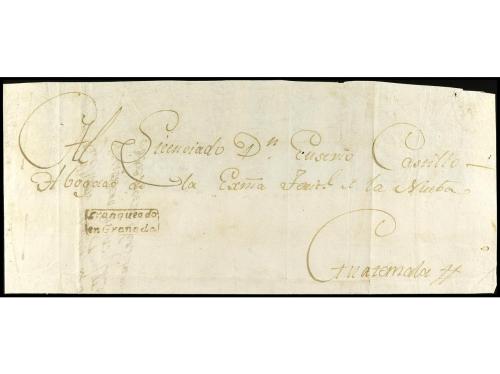 Al Licenciado Dn Eusevio Castillo
Abogado de la Exma de la Nueba
Franqueado
en Granada
Guatemala